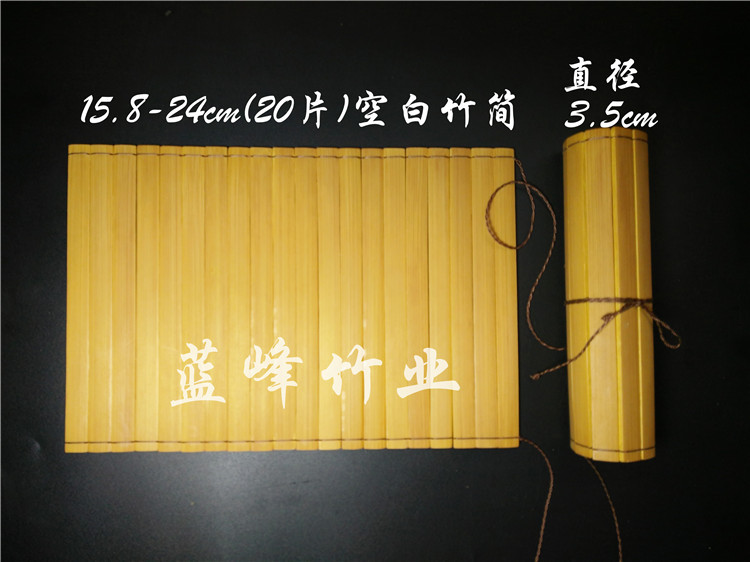 15.8-24cm(20片)空白竹简
直径
3.5cm
蓝峰竹业